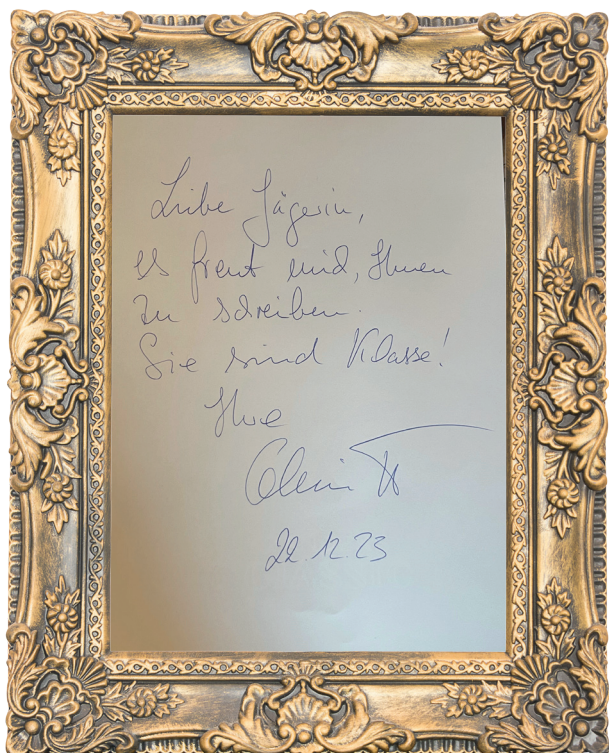 Liebe Jägerin,
es freut mich, Ihnen
zu schreiben.
Sie sind Klasse!
Ihre
22.12.23